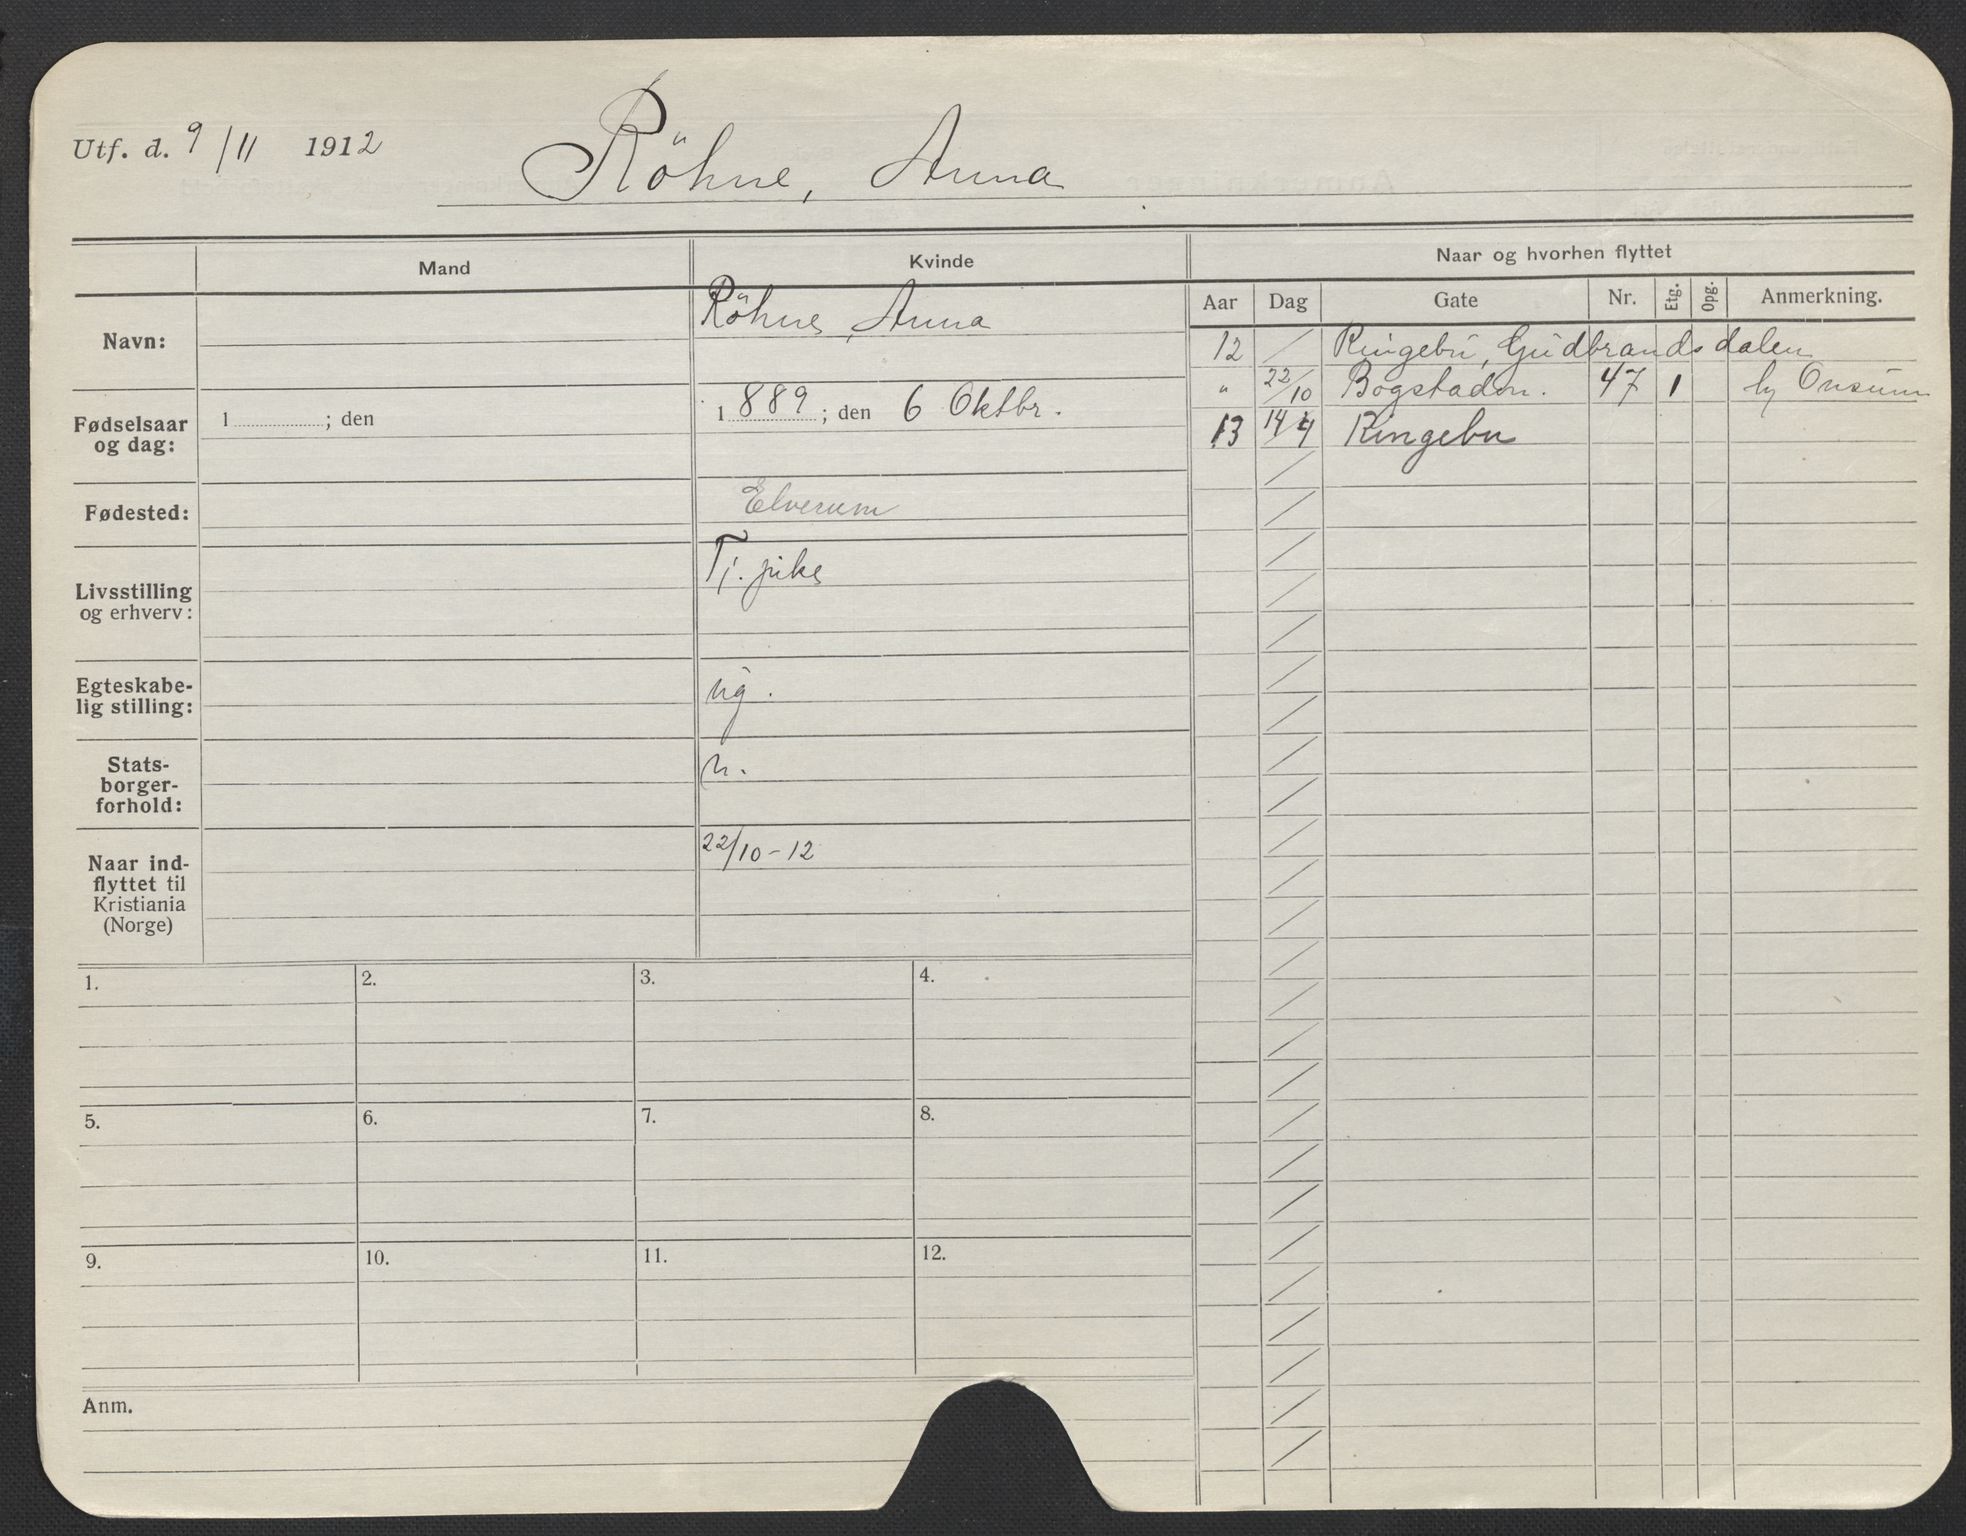 Utf. d. 9/11 1912
Röhne, Anna
Mand
Kvinde
Naar og hvorhen flyttet
Aar Dag Gate Nr. Etg. Opg. Anmerkning.
Navn:
Röhne, Anna
Fødselsaar
og dag:
1 ; den
1889; den 6 Oktbr.
Fødested:
Elverum
Livsstilling
og erhverv:
Tj. pike
Egteskabe-
lig stilling:
ug.
Stats-
borger-
forhold:
n.
Naar ind-
flyttet til
Kristiania
(Norge)
22/10-12
12 Ringebu, Gudbrandsdalen
" 22/10 Bogstadvn. 47 1 Onsum
13 14/4 Ringebu
1. 2. 3. 4.
5. 6. 7. 8.
9. 10. 11. 12.
Anm.